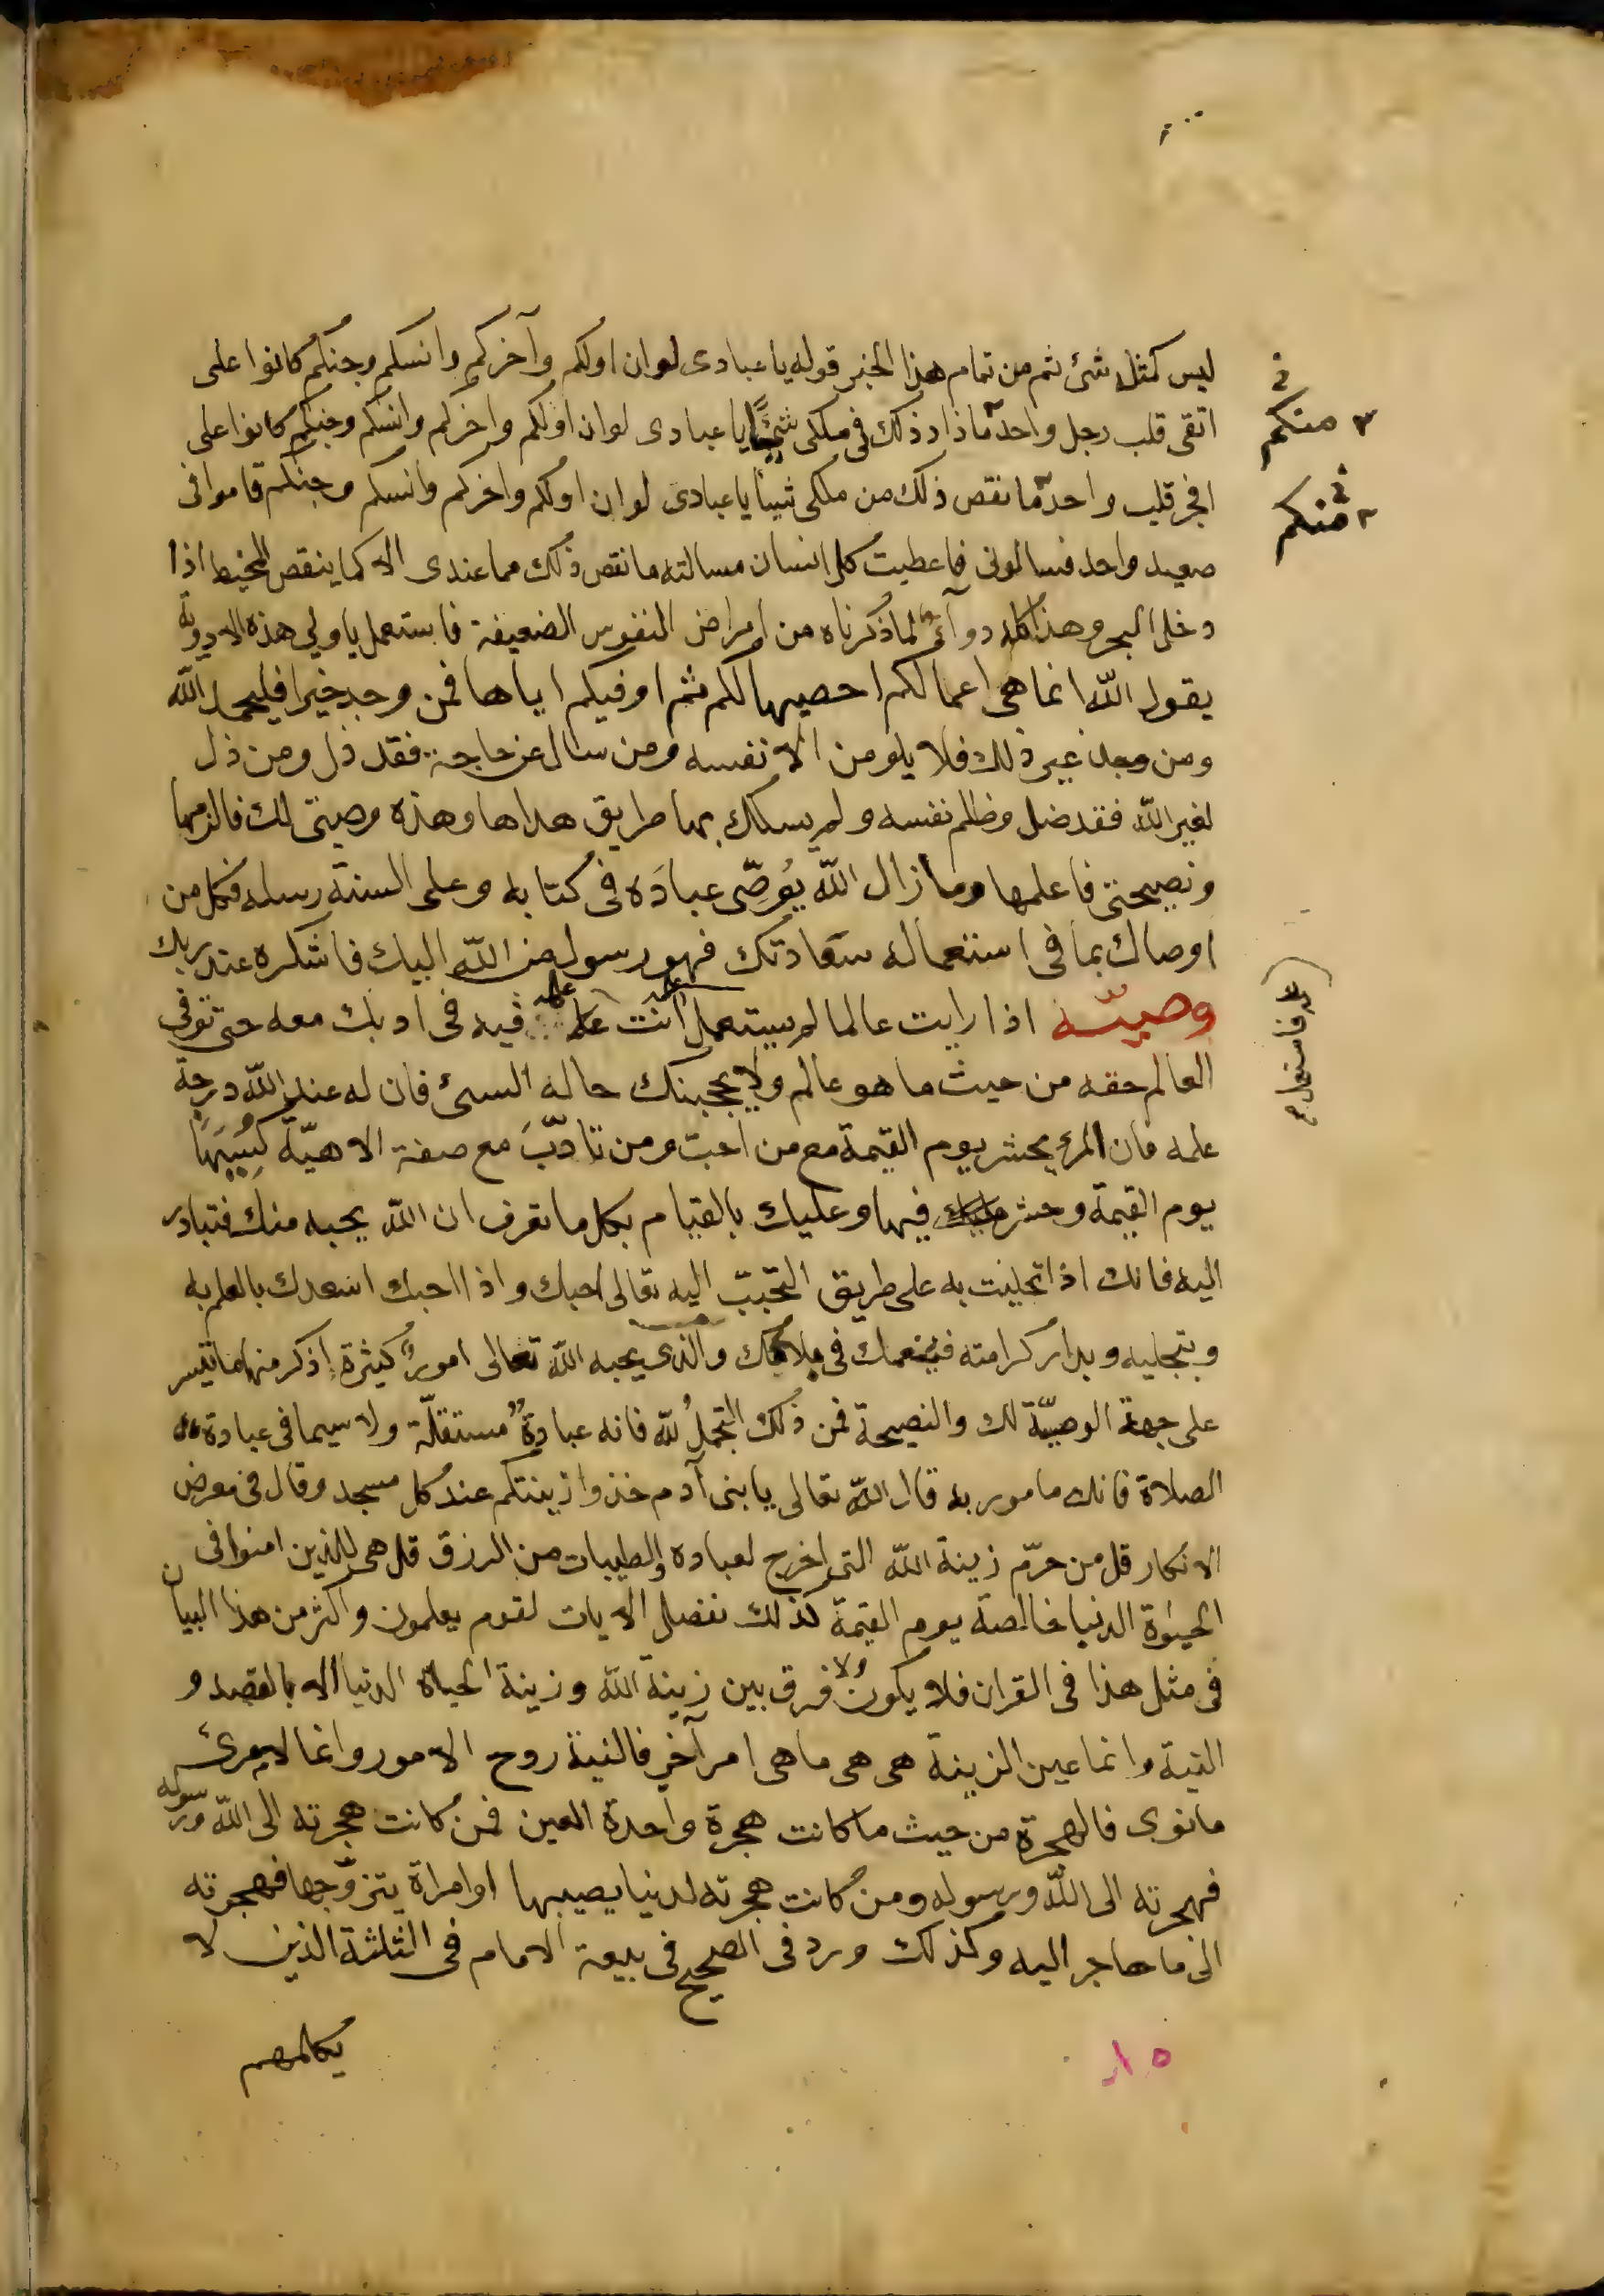 ليس كمثله شئ ثم من تمام هذا الخبر قوله يا عبادى لو ان اولكم وآخركم وانسكم وجنكم كانوا على
اتقى قلب رجل واحد ما زاد ذلك فى ملكى شيئًا يا عبادى لو ان اولكم واخركم وانسكم وجنكم كانوا على
منكم
افجر قلب واحد ما نقص ذلك من ملكى شيئا يا عبادى لو ان اولكم واخركم وانسكم وجنكم قاموا فى
منكم
صعيد واحد فسالونى فاعطيت كل انسان مسالته ما نقص ذلك مما عندى الا كما ينقص المخيط اذا
دخل البحر وهذا كله دوآءٌ لما ذكرناه من امراض النفوس الضعيفة فاستعمل يا ولى هذه الادوية
يقول الله انما هى اعمالكم احصيها لكم ثم اوفيكم اياها فمن وجد خيرا فليحمد الله
ومن وجد غير ذلك فلا يلومن الا نفسه ومن سال عن حاجة فقد ذل ومن ذل
لغير الله فقد ضل وظلم نفسه ولم يسلك بها طريق هداها وهذه وصيتى لك فالزمها
ونصيحتى فاعلمها وما زال الله يُوصِّى عبادَه فى كتابه وعلى السنة رسله فكل من
اوصاك بما فى استعماله سعادتك فهو رسول من الله اليك فاشكره عند ربك
وصيّة اذا رايت عالما لم يستعمل علمه انت علمه فيه فى ادبك معه حتى توفى
فاستعمل
العالم حقه من حيث ما هو عالم ولا يحجبنك حاله السئ فان له عند الله درجة
علمه فان المرء يحشر يوم القيمة مع من احبّ ومن تادّبَ مع صفة الاهيّة كُسِيَهَا
يوم القيمة وحشر فيها وعليك بالقيام بكل ما تعرف ان الله يحبه منك فتبادر
اليه فانك اذا تحليت به على طريق التحبّب اليه تعالى احبك واذا احبك اسعدك بالعلم به
وبتجليه وبدار كرامته فينعمك فى بلائك والذى يحبه الله تعالى امورٌ كثيرة اذكر منها ما تيسر
على جهة الوصيّة لك والنصيحة فمن ذلك التجملُ لله فانه عبادةٌ مستقلّة ولا سيما فى عبادة
الصلاة فانك مامور به قال الله تعالى يا بنى آدم خذوا زينتكم عند كل مسجد وقال فى معرض
الانكار قل من حرّم زينة الله التى اخرج لعباده والطيبات من الرزق قل هى للذين امنوا فى
الحيوة الدنيا خالصة يوم القيمة كذلك نفصل الايات لقوم يعلمون واكثر من هذا البيان
فى مثل هذا فى القران فلا يكون ولا فرق بين زينة الله وزينة الحياة الدنيا الا بالقصد و
النية وانما عين الزينة هى هى ما هى امر آخر فالنية روح الامور وانما لامرئ
ما نوى فالهجرة من حيث ما كانت هجرة واحدة العين فمن كانت هجرته الى الله ورسوله
فهجرته الى الله ورسوله ومن كانت هجرته لدنيا يصيبها او امراة يتزوّجها فهجرته
الى ما هاجر اليه وكذلك ورد فى الصحيح فى بيعة الامام فى الثلثة الذين لا
يكلمهم